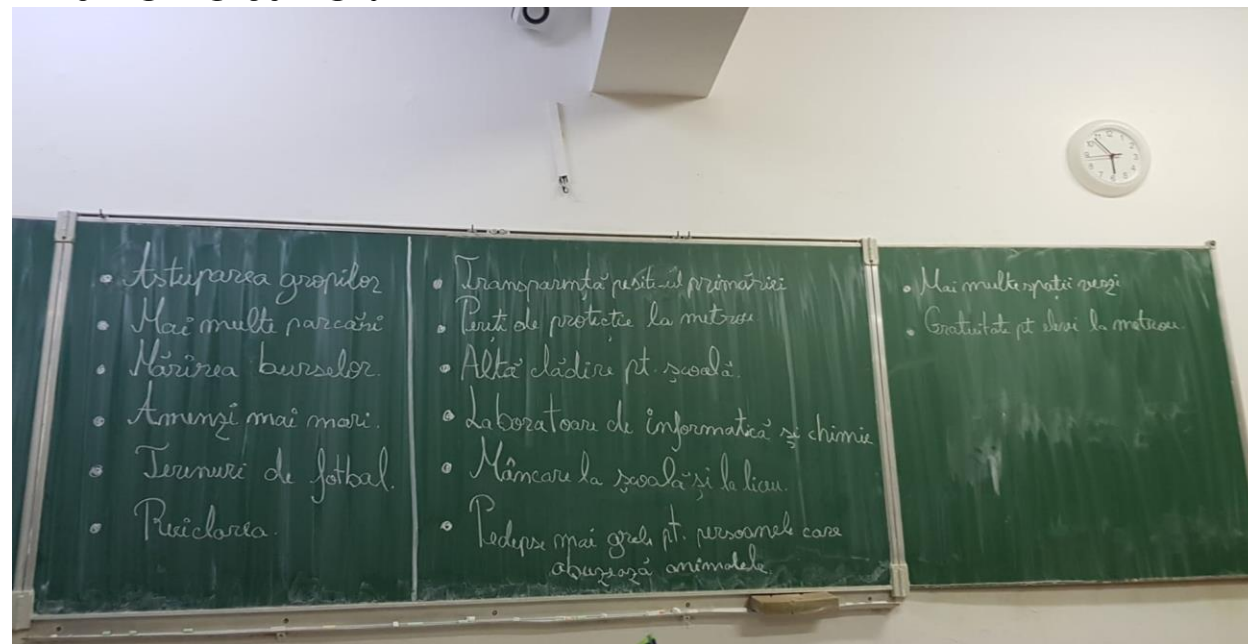 • Astuparea gropilor
• Mai multe parcări
• Mărirea burselor.
• Amenzi mai mari.
• Terenuri de fotbal.
• Reciclarea.
• Transparență pe site-ul primăriei
• Pereți de protecție la metrou
• Altă clădire pt. școală.
• Laboratoare de informatică și chimie
• Mâncare la școală și la liceu.
• Pedepse mai grele pt. persoanele care
abuzează animalele.
• Mai multe spații verzi
• Gratuitate pt elevi la metrou